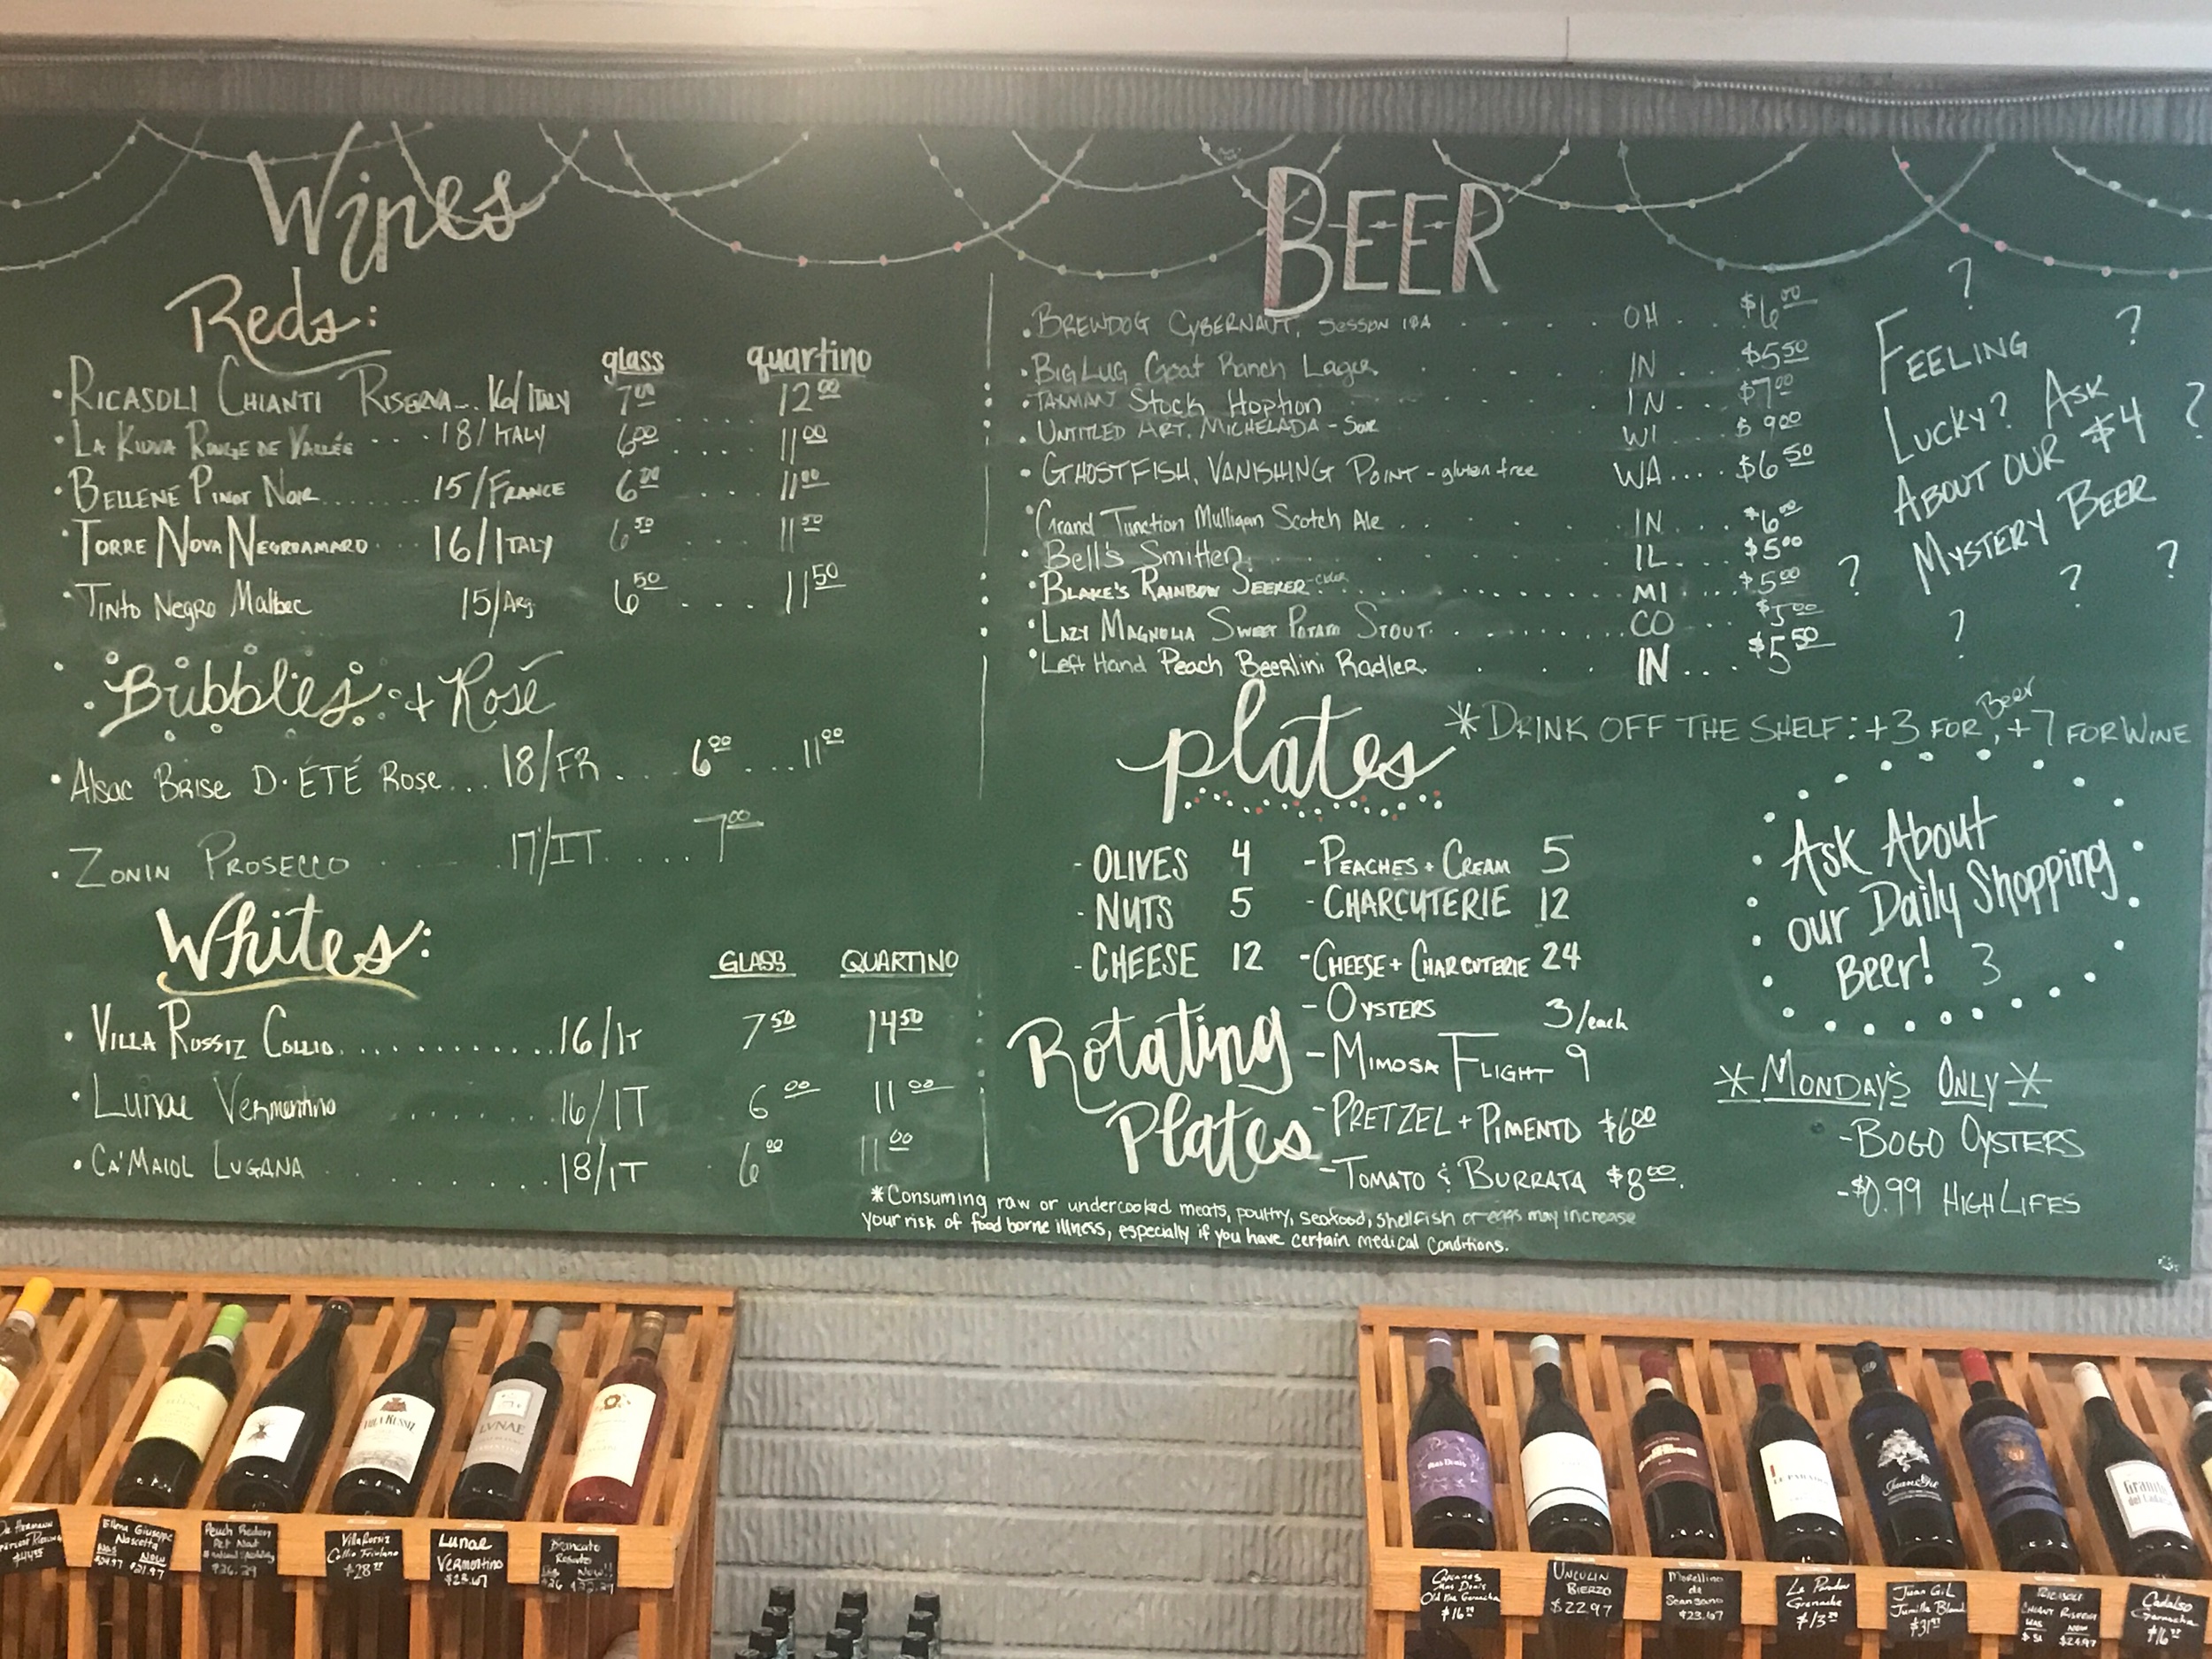 Wines
Reds:
glass quartino
• RICASOLI CHIANTI RISERVA... 16/ITALY 7.00 .... 12.00
• LA KIUVA ROUGE DE VALLÉE ... 18/ITALY 6.00 .... 11.00
• BELLENE PINOT NOIR....... 15/FRANCE 6.00 ... 11.00
• TORRE NOVA NEGROAMARO ... 16/ITALY 6.50 ... 11.50
• TINTO NEGRO Malbec 15/ARG 6.50 ... 11.50
Bubbles + Rosé
• Alsac BRISE D·ÉTÉ ROSE... 18/FR.. 6.00 ... 11.00
• ZONIN PROSECCO ..... 17/IT..... 7.00
Whites:
GLASS QUARTINO
• VILLA RUSSIZ COLLIO............ 16/IT 7.50 14.50
• Lunae Vermentino ....... 16/IT 6.00 11.00
• CA'MAIOL LUGANA ........ 18/IT 6.00 11.00
BEER
• BREWDOG CYBERNAUT, SESSON IPA .... OH ... $6.00
• BIG LUG Goat Ranch Lager .... IN ... $5.50
• TAXMAN Stock Hoption .... IN ... $7.00
• UNTITLED ART. MICHELADA - Sour WI .. $9.00
• GHOSTFISH, VANISHING POINT - gluten free WA.... $6.50
• Grand Junction Mulligan Scotch Ale ... IN ... $6.00
• Bell's Smitten ...... IL.... $5.00
• BLAKE'S RAINBOW SEEKER - Cider .......... MI .... $5.00
• LAZY MAGNOLIA SWEET POTATO STOUT. ........ CO ... $5.00
• Left Hand Peach Beerlini Radler. .... IN ... $5.50
?
FEELING ?
LUCKY? ASK ?
ABOUT OUR $4
MYSTERY BEER
? ? ?
?
* DRINK OFF THE SHELF: +3 FOR Beer, +7 FOR WINE
plates
- OLIVES 4
- NUTS 5
- CHEESE 12
- PEACHES + CREAM 5
- CHARCUTERIE 12
- CHEESE + CHARCUTERIE 24
Rotating
Plates
- OYSTERS 3/each
- MIMOSA FLIGHT 9
- PRETZEL + PIMENTO $6.00
- TOMATO & BURRATA $8.00.
Ask About
our Daily Shopping
Beer! 3
* MONDAY'S ONLY *
- BOGO OYSTERS
- $0.99 HIGH LIFES
* Consuming raw or undercooked meats, poultry, seafood, shellfish or eggs may increase
your risk of food borne illness, especially if you have certain medical conditions.
VILLA RUSSIZ
LVNAE
Mas Donis
Juan Gil
Elena Giuseppe
Nascetta
WAS NOW
$21.97
Pet Nat
$26.29
Villa Russiz
Collio Friulano
Lunae
Vermentino
$23.67
Rosato
NOW!!
$26
Mas Donis
Old Vine Garnacha
UNCULIN
BIERZO
$22.97
Morellino
de
Scansano
$23.67
Grenache
Juan Gil
Jumilla Blend
RICASOLI
CHIANTI RISERVA
WAS NOW
$24.97
Cadalso
Garnacha